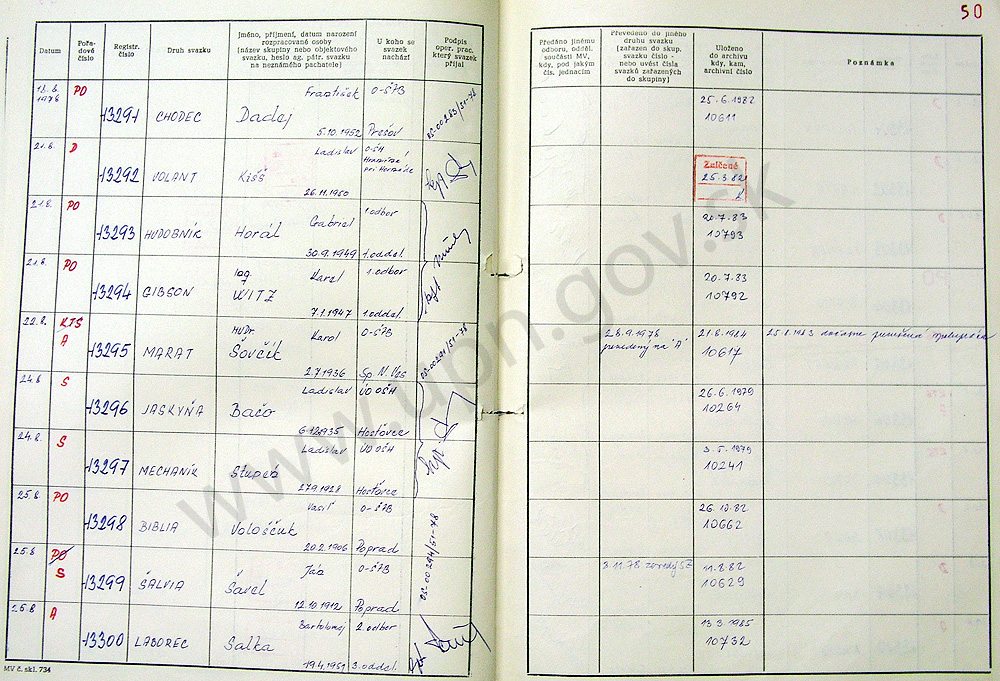 50
Datum
Pořadové číslo
Registr. číslo
Druh svazku
jméno, příjmení, datum narození rozpracované osoby (název skupiny nebo objektového svazku, heslo ag. pátr. svazku na neznámého pachatele)
U koho se svazek nachází
Podpis oper. prac. který svazek přijal
Předáno jinému odboru, odděl. součásti MV, kdy, pod jakým čís. jednacím
Převedeno do jiného druhu svazku (zařazen do skup. svazku číslo - nebo uvést čísla svazků zařazených do skupiny)
Uloženo do archivu kdy, kam, archivní číslo
Poznámka
18.8. 1978 PO 13291 CHODEC Dadej František 5.10.1952 O-ŠtB Prešov 25.6.1982 10611
21.8. D 13292 VOLANT Kišš Ladislav 26.11.1950 Zničené 25.3.82
21.8. PO 13293 HUDOBNÍK Horál Gabriel 30.9.1949 1.odbor 1.oddel. 20.7.83 10793
21.8. PO 13294 GIBSON Ing WITZ Karel 7.1.1947 1.odbor 1.oddel. 20.7.83 10792
22.8. KTS A 13295 MARAT MUDr Šovčík Karol 2.7.1936 O-ŠtB Sp. N. Ves 28.9.1978 prevedený na "A" 21.8.1984 10617
24.8 S 13296 JASKYŇA Bačo Ladislav 6.12.1935 ÚO OŠH Hosťovce 26.6.1979 10264
24.8. S 13297 MECHANIK Ladislav 27.9.1928 ÚO OŠH Hosťovce 3.5.1979 10241
25.8 PO 13298 BIBLIA Vološčuk Vasiľ 20.2.1906 O-ŠtB Poprad 26.10.82 10662
25.8 PO S 13299 ŠALVIA Šavel Ján 12.10.1912 O-ŠtB Poprad 3.11.78 11.8.82 10629
25.8 A 13300 LABOREC Salka Bartolomej 19.4.1951 2.odbor 3.oddel. 13.3.1985 10732
MV č. skl. 734
www.upn.gov.sk